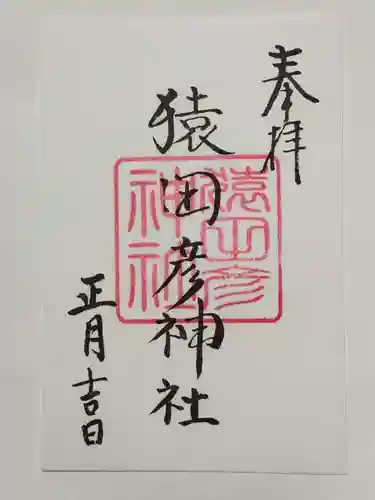 奉拝
猿田彦神社
正月吉日
猿田彦
神社